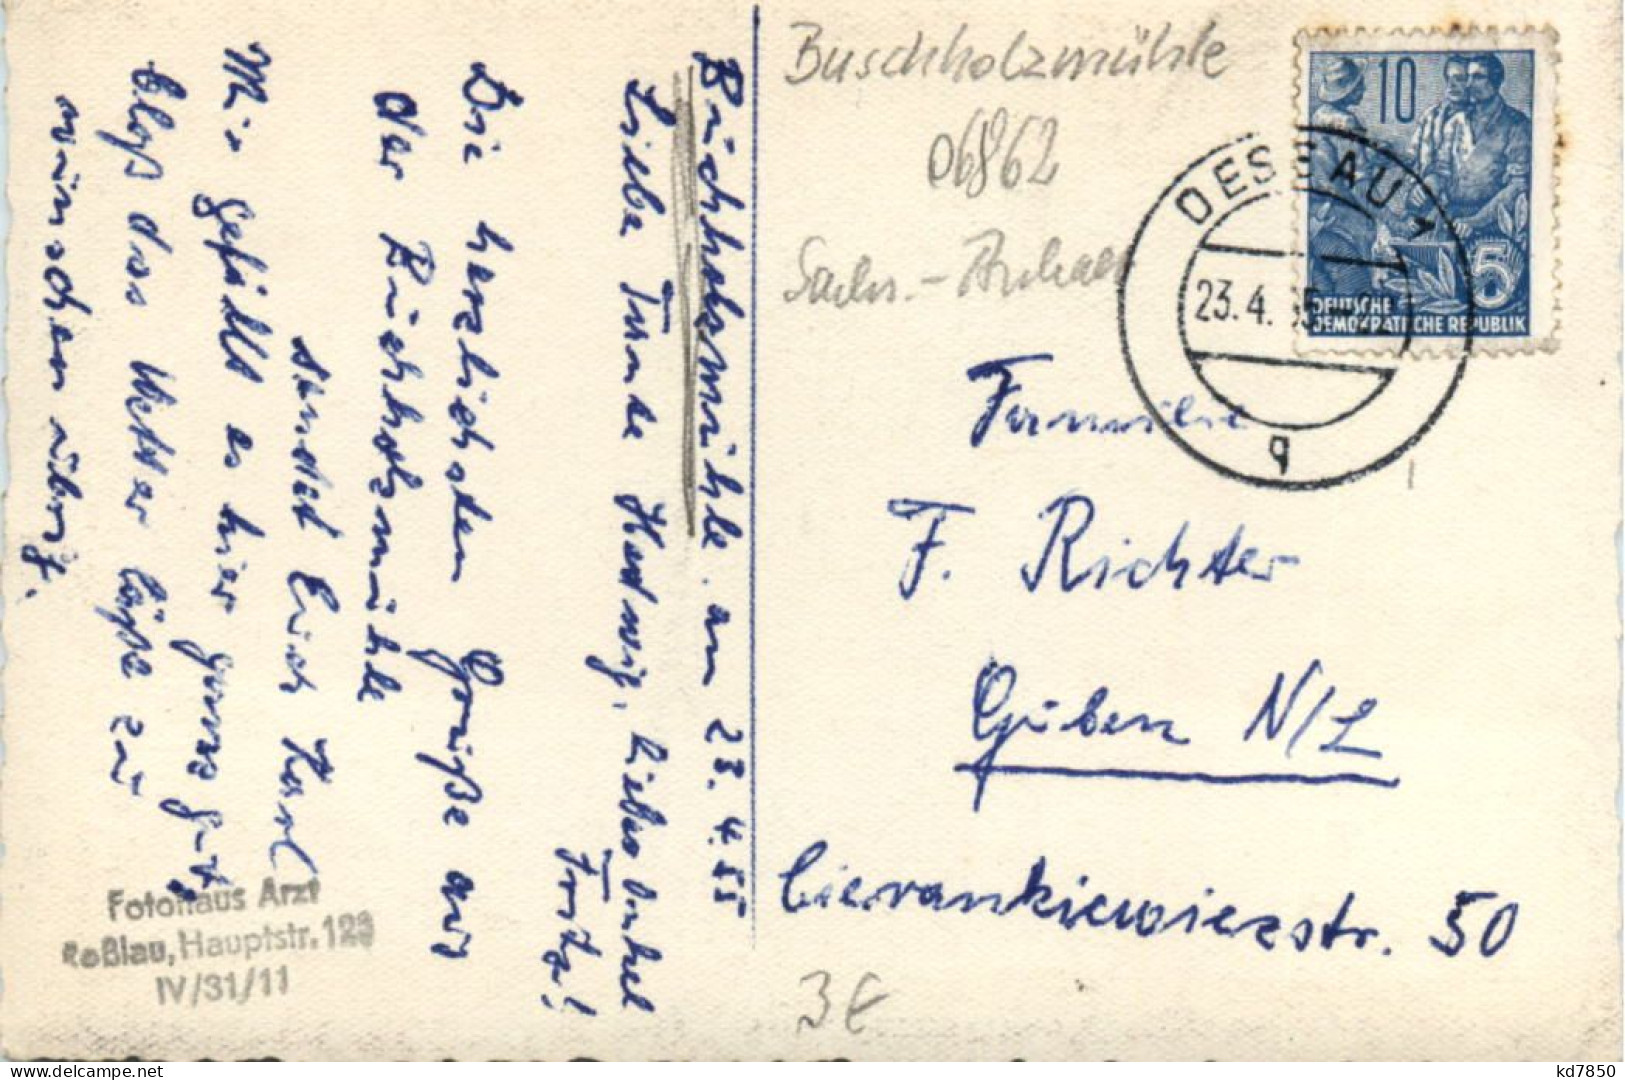 Buchholzmühle. am 23.4.55
Liebe Tante Hedwig, lieber Onkel
Fritz!
Die herzlichsten Grüße aus
der Buchholzmühle
sendet Euch Karl
Mir gefällt es hier ganz gut,
bloß das Wetter läßt zu
wünschen übrig.
Fotohaus Arzt
Roßlau, Hauptstr. 123
IV/31/11
Buschholzmühle
06862
Sachs.-Anhalt
10
5
DEUTSCHE
DEMOKRATISCHE REPUBLIK
DESSAU 1
23.4.55
q
Familie
F. Richter
Guben N/L
Cievankiewiezstr. 50
3€
kd7850